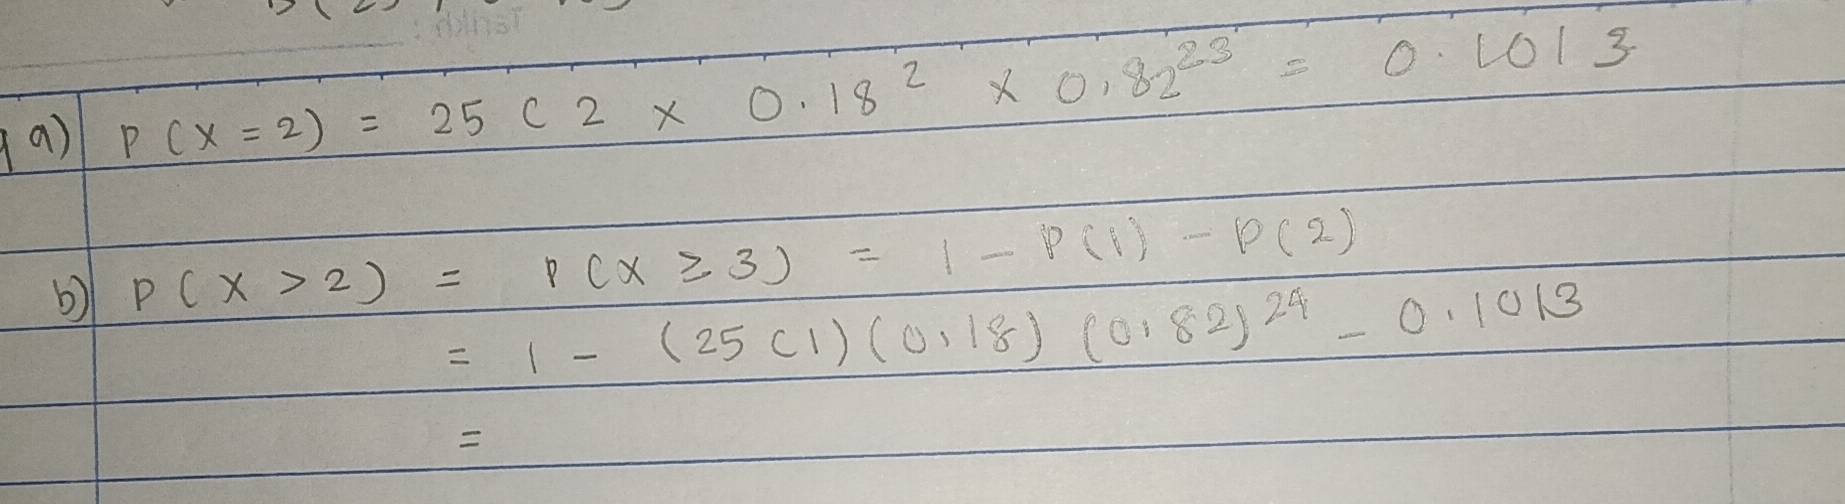 a) P(X=2) = 25 C 2 × 0.18² × 0.82²³ = 0.1013
b) P(X > 2) = P(X ≥ 3) = 1 - P(1) - P(2)
= 1 - (25 C 1)(0.18)(0.82)²⁴ - 0.1013
=